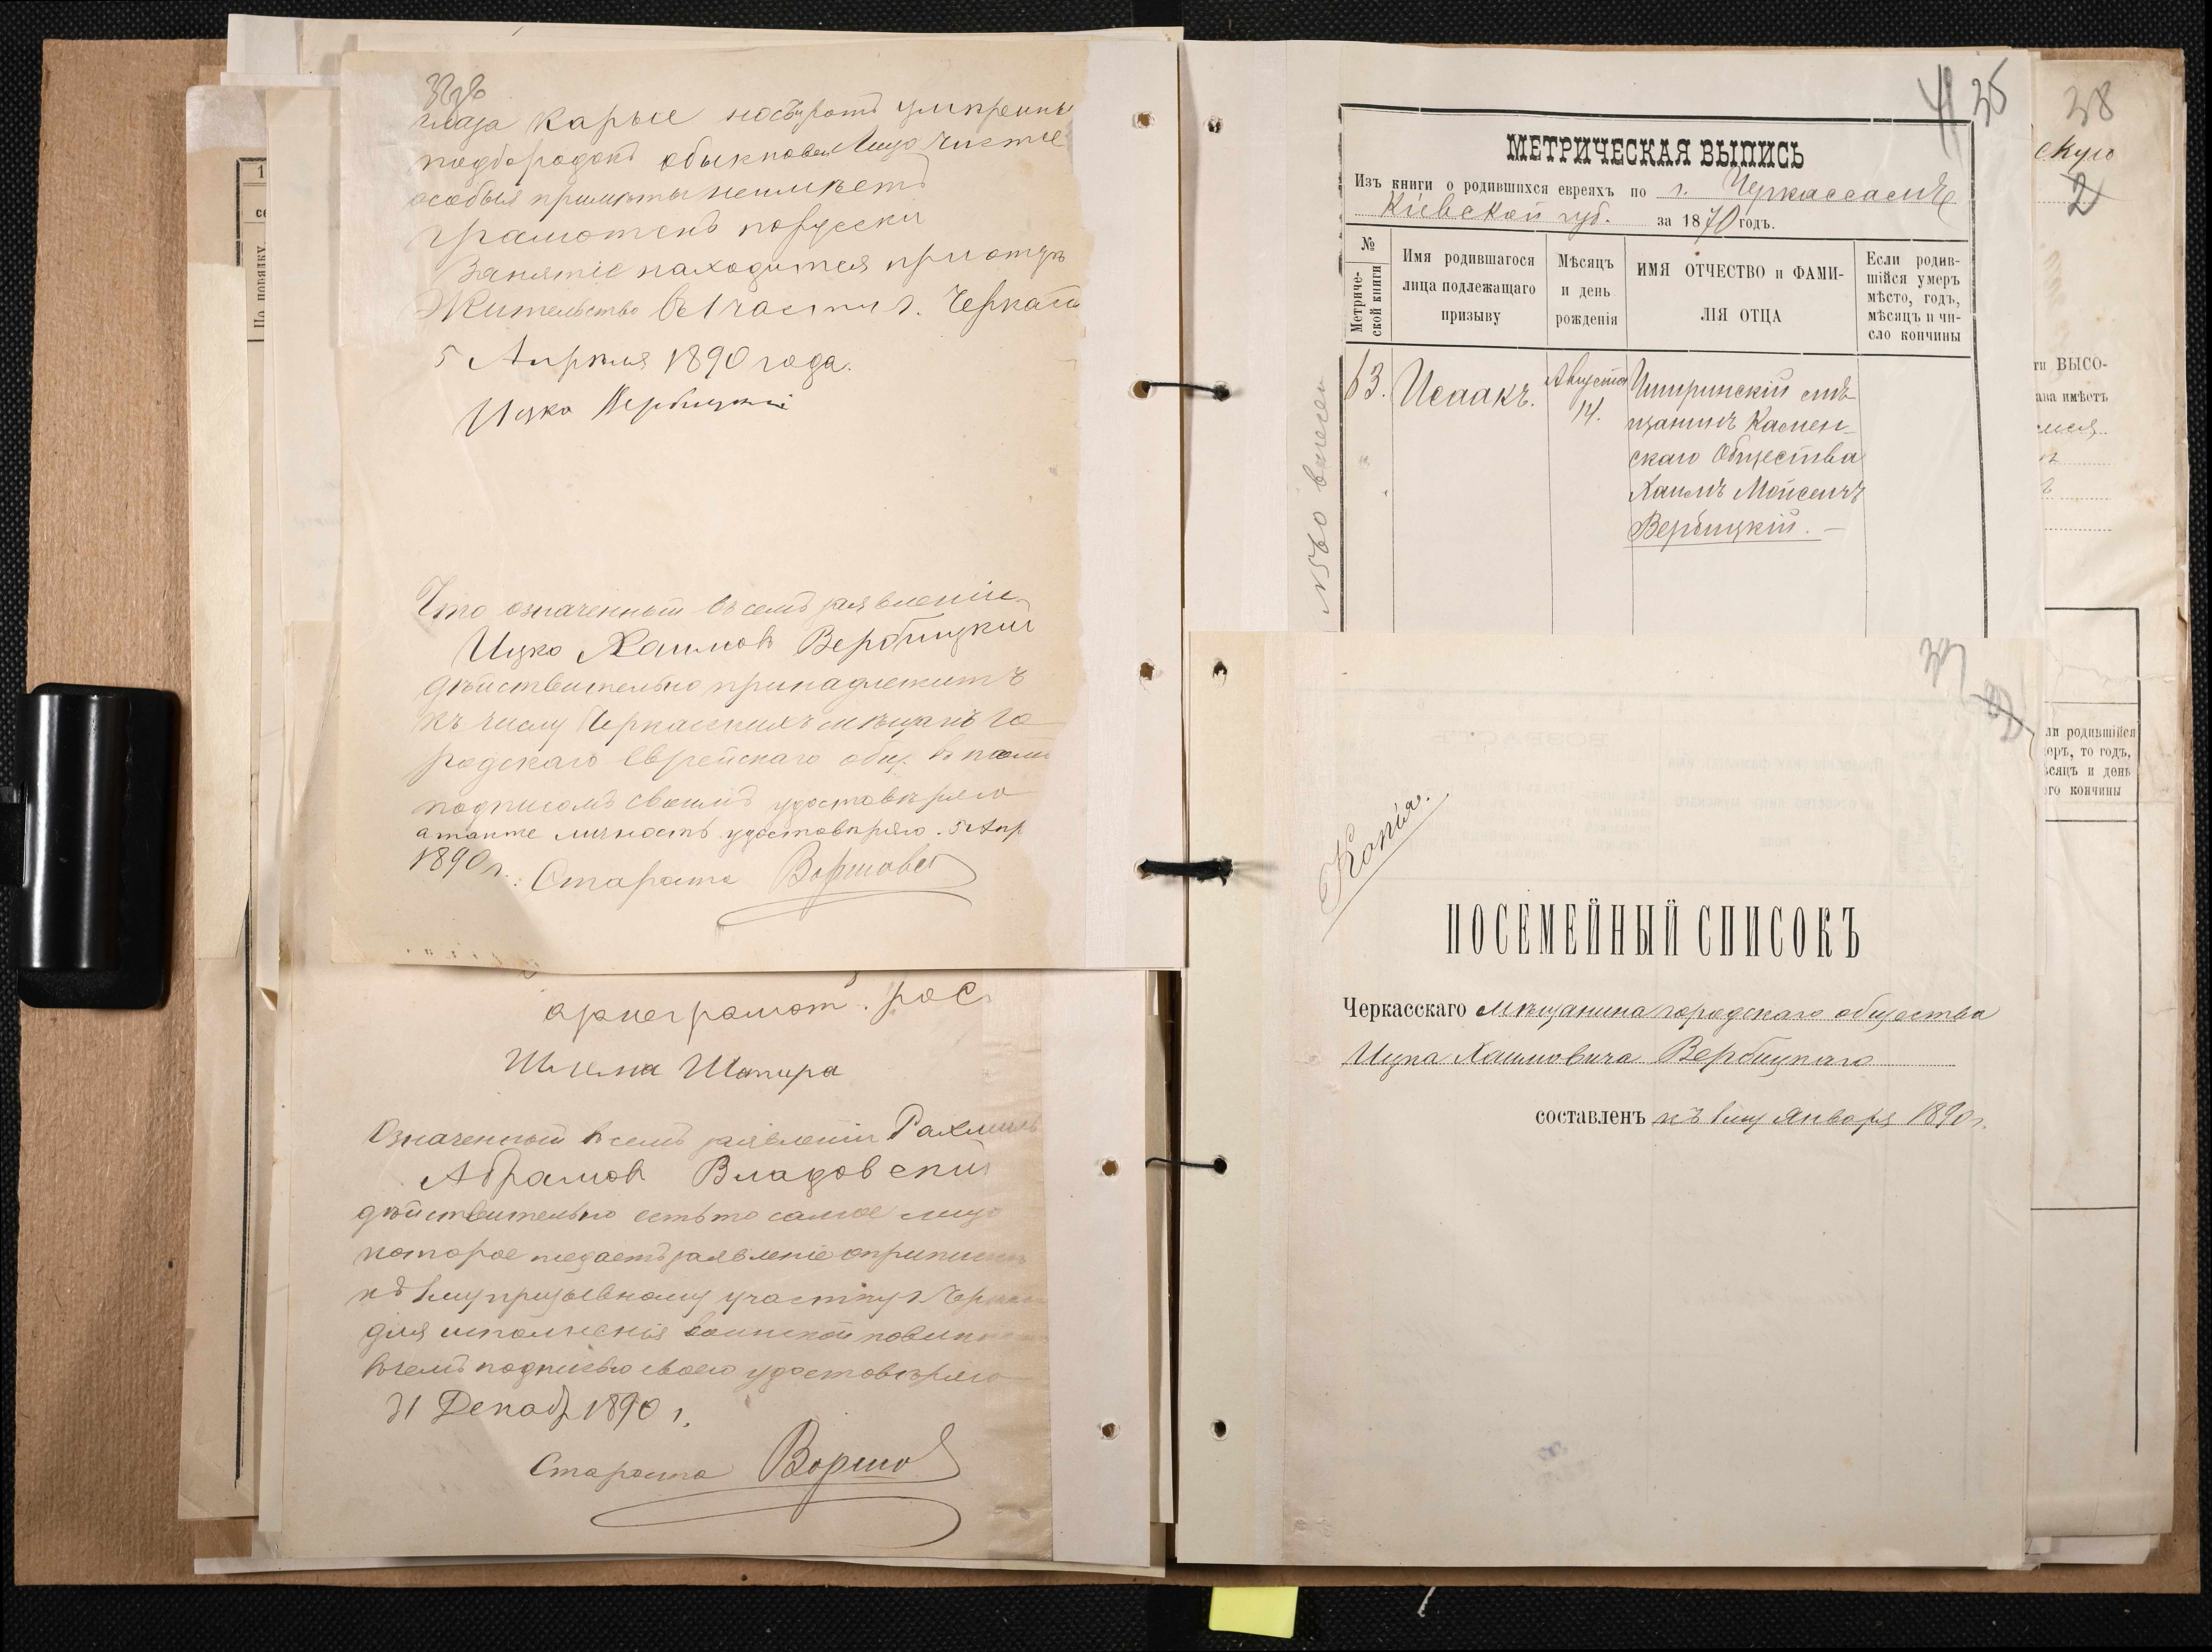 глаза карые носъ ротъ умѣренны
подбородокъ обыкновен Лицо чистое
особыя примѣты неимѣетъ
грамотенъ порусски
Занятіе находится при отцѣ
Жительство въ 1 части г. Черкасс
5 Апрѣля 1890 года.
Ицко Вербицкій
Что означенный въ семъ заявленіи
Ицко Хаимовъ Вербицкий
дѣйствительно принадлежитъ
къ числу Черкасскихъ мѣщанъ го
родскаго Еврейскаго общ. въ томъ
подписомъ своимъ удостовѣряю
а также личность удостовѣряю. 5 Апр
1890 г. Староста
Шлема Шапира
Означенный въ семъ заявленіи Рахмиль
Абрамов Владовский
дѣйствительно есть то самое лицо
которое подаетъ заявленіе о припискѣ
къ 1му призывному участку г. Черкас
для исполненія воинской повинн
въ чемъ подписью своею удостовѣряю
31 Декабр 1890 г.
Староста
35
МЕТРИЧЕСКАЯ ВЫПИСЬ
Изъ книги о родившихся евреяхъ по г. Черкассамъ
Кіевской губ. за 1870 годъ.
№ Метриче-ской книги
Имя родившагося лица подлежащаго призыву
Мѣсяцъ и день рожденія
ИМЯ ОТЧЕСТВО и ФАМИ-ЛІЯ ОТЦА
Если родив-шійся умеръ мѣсто, годъ, мѣсяцъ и чи-сло кончины
63. Исаакъ. Августа 14.
мѣ-
щанинъ Камен-
скаго Общества
Хаимъ Мойсеичъ
Вербицкій. —
37
Копія.
ПОСЕМЕЙНЫЙ СПИСОКЪ
Черкасскаго мѣщанина городскаго общества
Ицка Хаимовича Вербицкаго
составленъ къ 1му января 1890 г.
38
скую
2
ти ВЫСО-
ава имѣетъ
ли родившійся
еръ, то годъ,
ѣсяцъ и день
го кончины